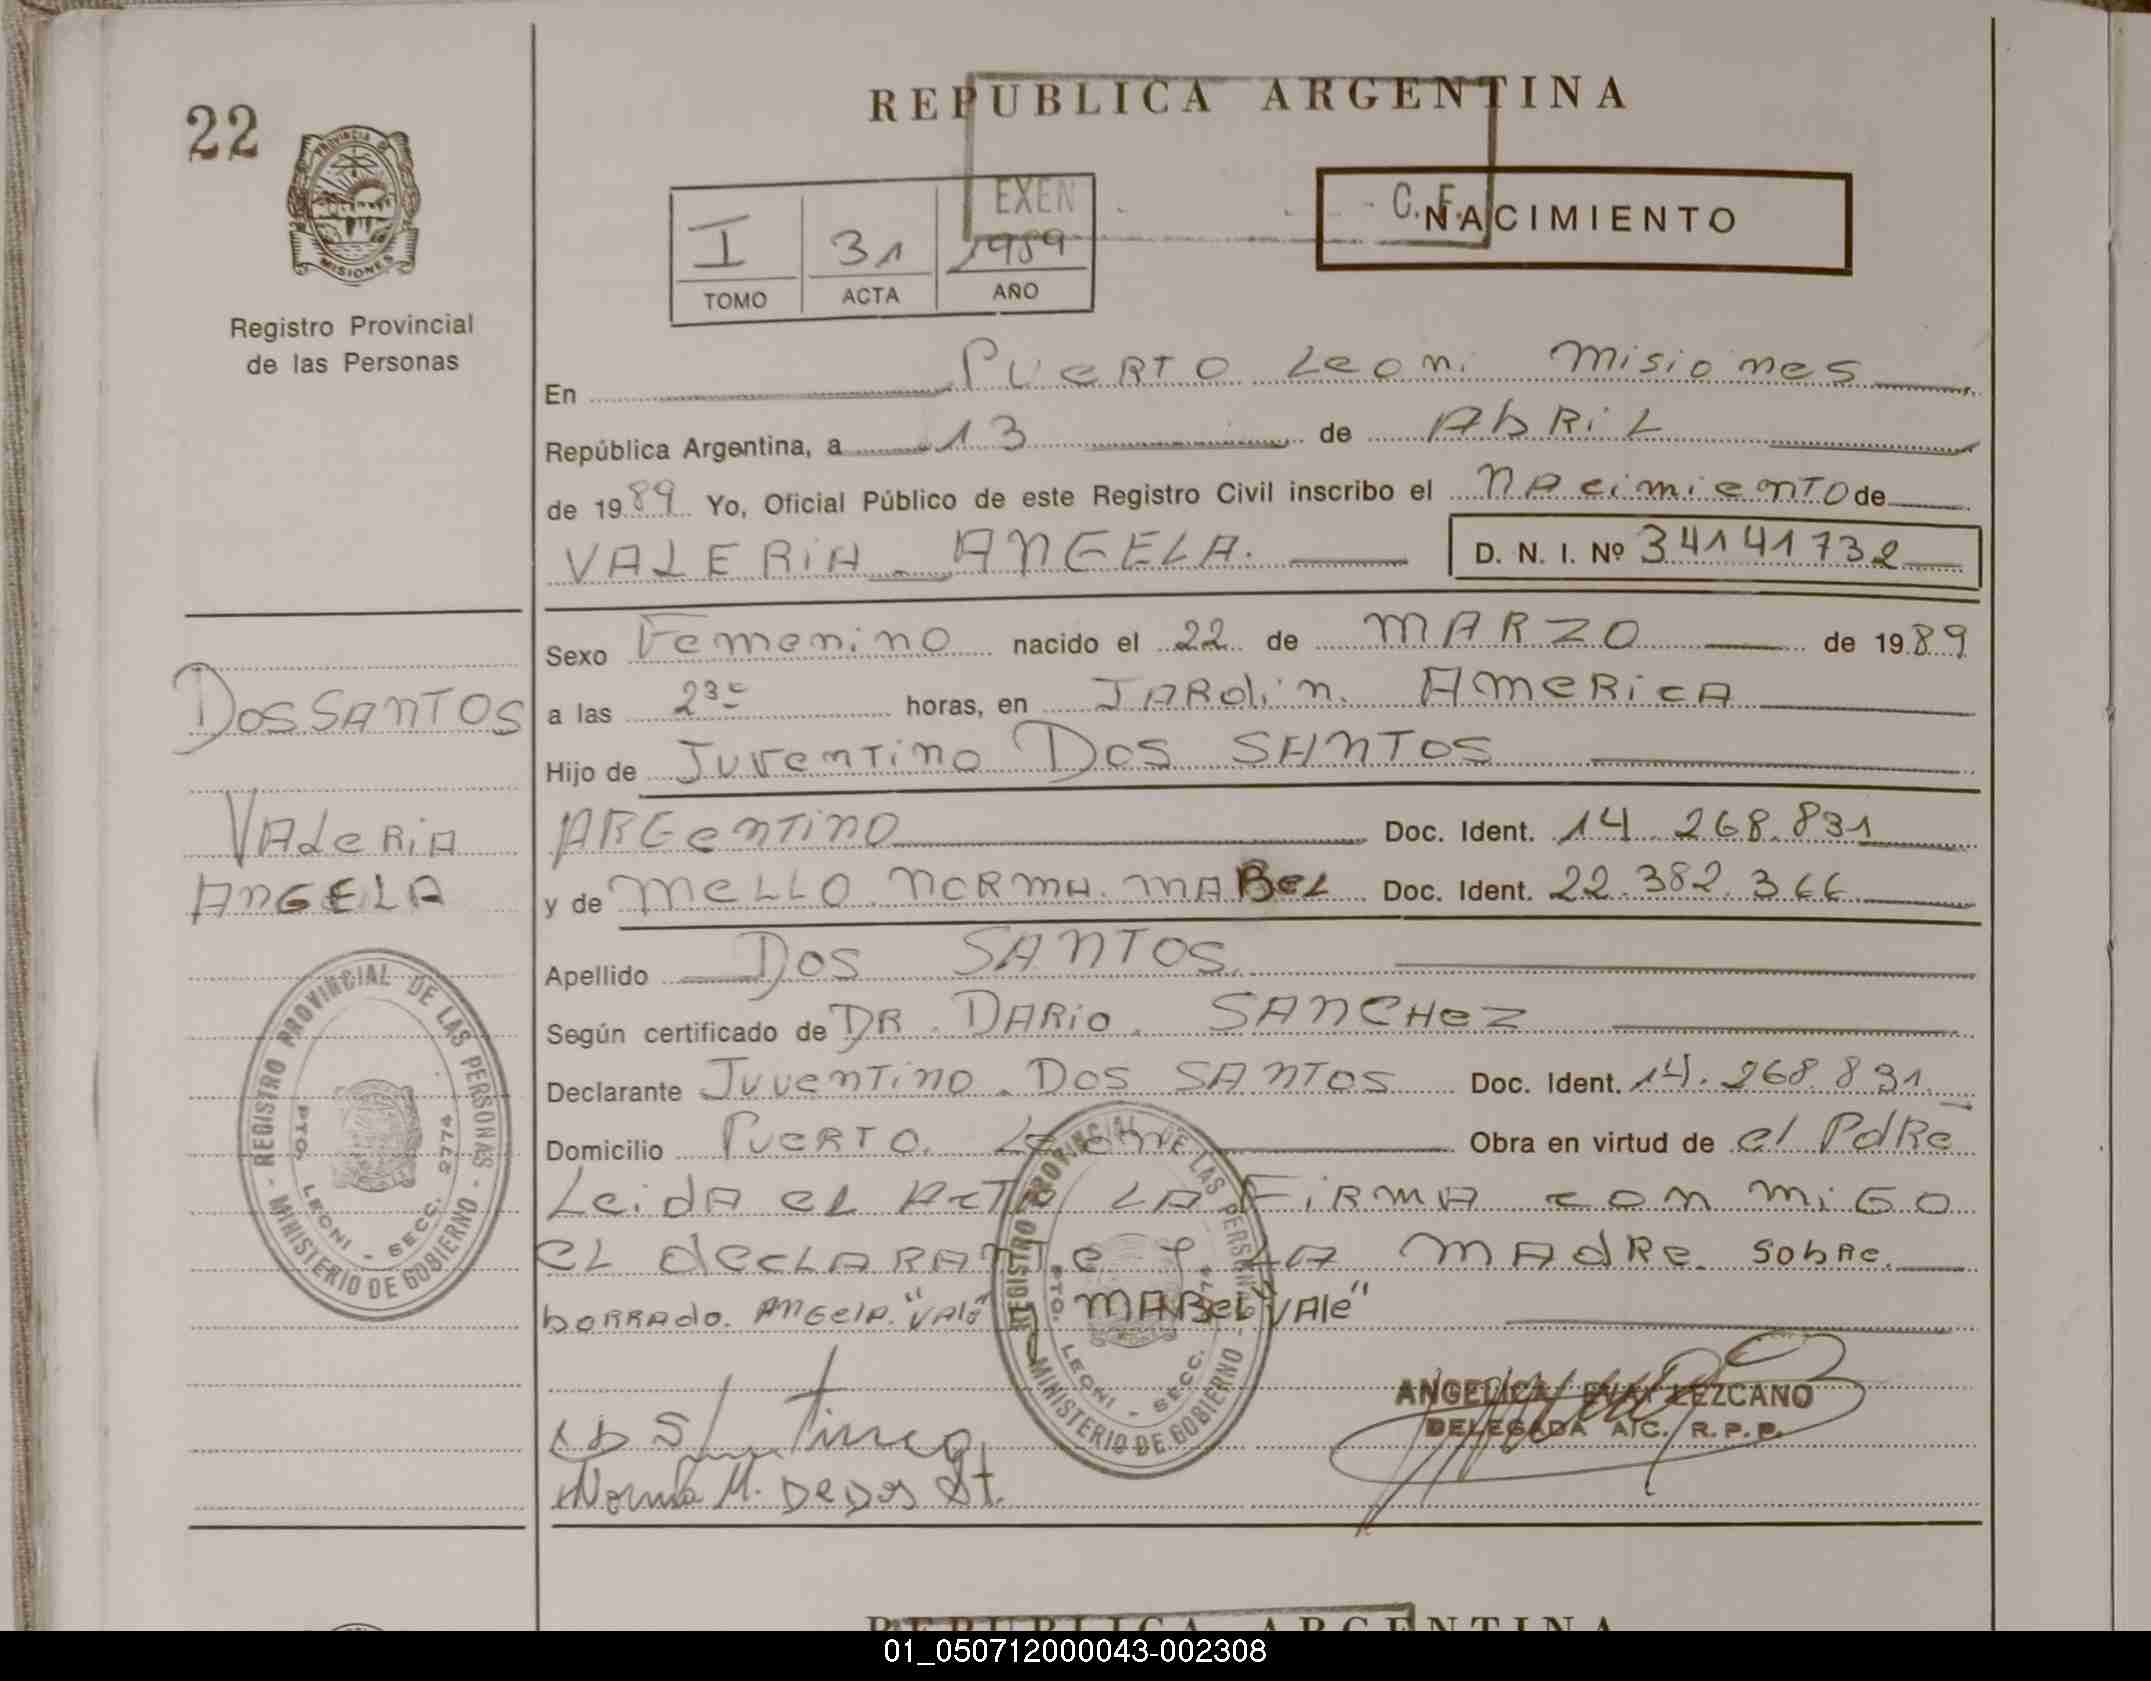 22
PROVINCIA DE
MISIONES
Registro Provincial
de las Personas
DOS SANTOS
VALeRiA
ANGELA
REGISTRO PROVINCIAL DE LAS PERSONAS
MINISTERIO DE GOBIERNO
PTO. LEONI - SECC. 2774
REPUBLICA ARGENTINA
EXEN
C. F.
NACIMIENTO
I 31 1989
TOMO ACTA AÑO
En PUeRTO Leoni Misiones
República Argentina, a 13 de AbRiL
de 1989 Yo, Oficial Público de este Registro Civil inscribo el NAcimienTO de
VALERiA ANGELA. D. N. I. Nº 34141732
Sexo Femenino nacido el 22 de MARZO de 1989
a las 23 horas, en JARdin AmeRicA
Hijo de JuvenTino DOS SANTOS
ARGenTino Doc. Ident. 14.268.831
y de MeLLO NORMA MABeL Doc. Ident. 22.382.366
Apellido DOS SANTOS
Según certificado de DR. DARio SANCHeZ
Declarante JuvenTino DOS SANTOS Doc. Ident. 14.268.831
Domicilio PUeRTO Leoni Obra en virtud de el PdRe
Leida eL AcTA LA FiRMA con miGO
eL decLARANTe y LA MAdRe. sobRe
boRRAdo. ANGelA. "VAle" MABeL "VAle"
Norma M. De Dos St.
ANGELICA EVA LEZCANO
DELEGADA A/C. R. P. P.
REGISTRO PROVINCIAL DE LAS PERSONAS
MINISTERIO DE GOBIERNO
PTO. LEONI - SECC.
REPUBLICA ARGENTINA
01_050712000043-002308